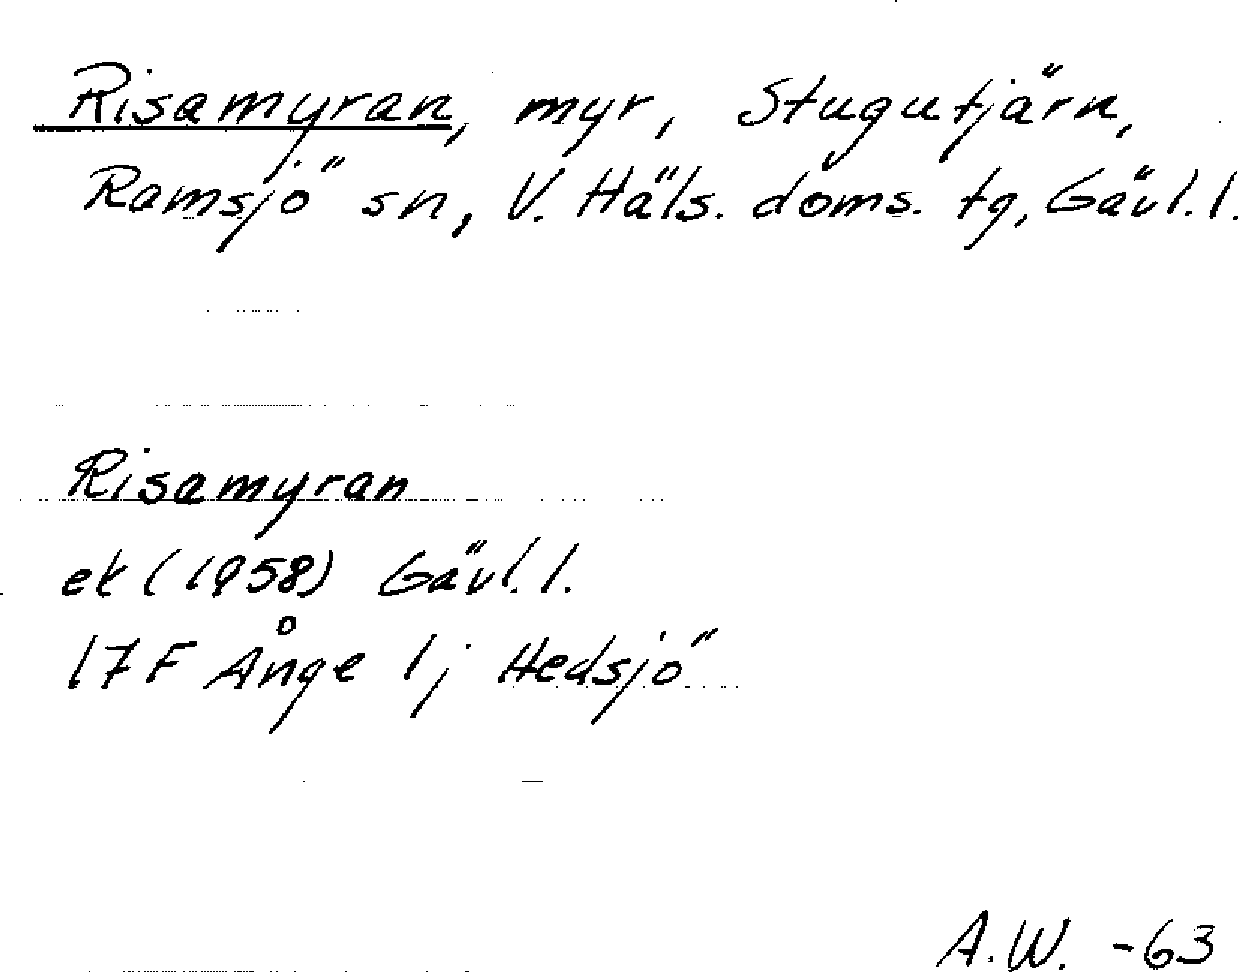 Risamyran, myr, Stugutjärn,
Ramsjö sn, V. Häls. doms. tg, Gävl. l.
Risamyran
ek (1958) Gävl. l.
17 F Ånge 1 j Hedsjö
A.W. -63